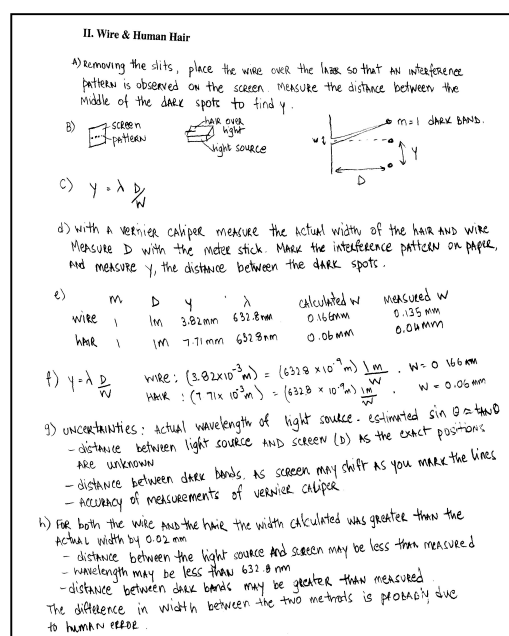 II. Wire & Human Hair
A) Removing the slits, place the wire over the laser so that an interference
pattern is observed on the screen. Measure the distance between the
middle of the dark spots to find y.
B) screen pattern hair over light light source m=1 dark band.
w
Y
D
C) y = λ D/W
d) With a vernier caliper measure the actual width of the hair and wire
Measure D with the meter stick. Mark the interference pattern on paper,
and measure y, the distance between the dark spots.
e) m D y λ calculated w measured w
wire 1 1m 3.82mm 632.8nm 0.166mm 0.135mm
hair 1 1m 7.71mm 632.8nm 0.06mm 0.04mm
f) y=λ D/W wire: (3.82x10⁻³m) = (632.8 x 10⁻⁹m) 1m/W. W=0 166 mm
Hair: (7 71x 10⁻³m) = (632.8 x 10⁻⁹m) 1m/W. W = 0.06mm
g) Uncertainties: Actual wavelength of light source. estimated sin θ ≈ tan θ
- distance between light source and screen (D) as the exact positions
are unknown
- distance between dark bands, as screen may shift as you mark the lines
- Accuracy of measurements of vernier caliper
h) For both the wire and the hair the width calculated was greater than the
actual width by 0.02 mm
- distance between the light source and screen may be less than measured
- wavelength may be less than 632.8 nm
- distance between dark bands may be greater than measured.
The difference in width between the two methods is probably due
to human error.